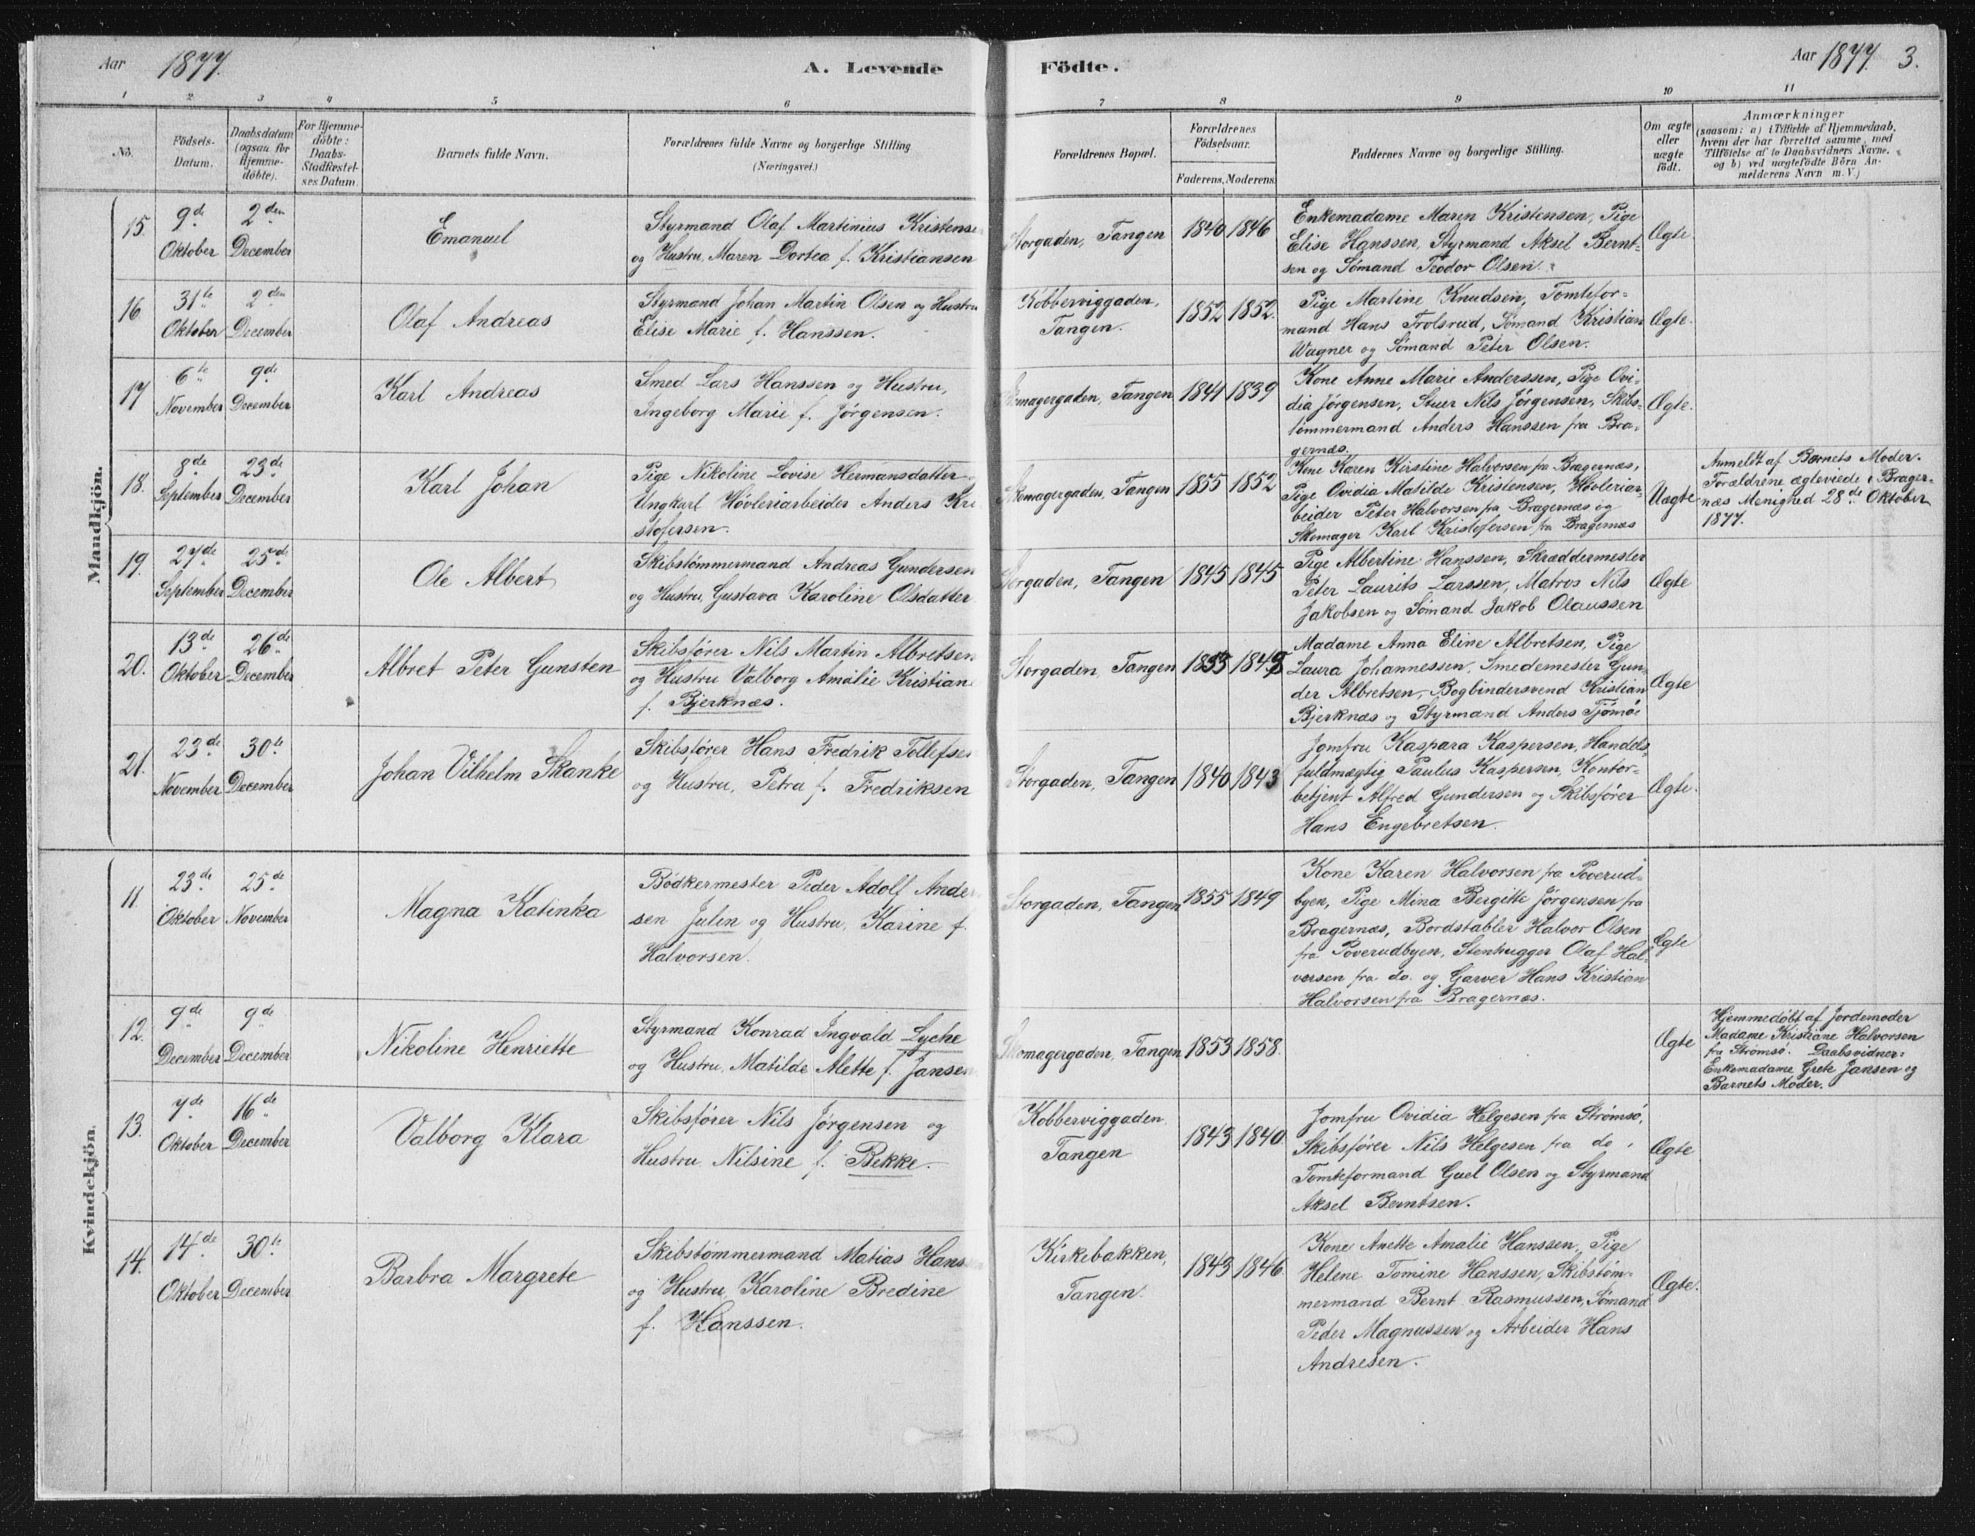 Aar 1877. A. Levende Födte. Aar 1877. 3.
1 2 3 4 5 6 7 8 9 10 11
No. Födsels-Datum. Daabsdatum (ogsaa for Hjemme-döbte). For Hjemme-döbte: Daabs-Stadfæstel-ses Datum. Barnets fulde Navn. Forældrenes fulde Navne og borgerlige Stilling (Næringsvei.) Forældrenes Bopæl. Forældrenes Födselsaar. Faderens. Moderens. Faddernes Navne og borgerlige Stilling. Om ægte eller uægte födt. Anmærkninger (saasom: a) i Tilfælde af Hjemmedaab, hvem der har forrettet samme, med Tilföielse af to Daabsvidners Navne. og b) ved uægtefödte Börn An-melderens Navn m. V.)
Mandkjön.
15. 9de Oktober 2den December
Emanuel
Styrmand Olaf Martinius Kristense
og Hustru, Maren Dortea f. Kristiansen
Storgaden, Tangen 1840 1846
Enkemadame Maren Kristensen, Pige
Elise Hanssen, Styrmand Aksel Bernt-
sen og Sømand Teodor Olsen.
Ægte.
16 31te Oktober 2den December
Olaf Andreas
Styrmand Johan Martin Olsen og Hustru
Elise Marie f. Hanssen.
Kobberviggaden,
Tangen.
1852 1852.
Pige Martine Knudsen, Tomtefor-
mand Hans Trolsrud, Sømand Kristian
Wagner og Sømand Peter Olsen.
Ægte.
17 6te November 9de December
Karl Andreas
Smed Lars Hanssen og Hustru,
Ingeborg Marie f. Jørgensen.
Skomagergaden, Tangen 1841 1839
Kone Anne Marie Anderssen, Pige Ovi-
dia Jørgensen, Stuer Nils Jørgensen, Skibs-
tømmermand Anders Hanssen fra Bra-
gernæs.
Ægte.
18. 8de September 23de December
Karl Johan
Pige Nikoline Lovise Hermansdatter
Ungkarl Høvleriarbeider Anders Kri
stofersen.
Skomagergaden, Tangen 1855 1852
Kone Karen Kirstine Halvorsen fra Bragernæs,
Pige Ovidia Matilde Kristensen, Høvleriar-
beider Peter Halvorsen fra Bragernæs og
Skomager Karl Kristofersen fra Bragernæs
Uægte
Anmeldt af Barnets Moder.
Forældrene ægteviede i Brager-
næs Menighed 28de Oktober
1877.
19. 27de September 25de December
Ole Albert
Skibstømmermand Andreas Gundersen
og Hustru, Gustava Karoline Olsdatter
Storgaden, Tangen 1845 1845
Pige Albertine Hanssen, Skræddermester
Peter Laurits Larssen, Matros Nils
Jakobsen og Sømand Jakob Olaussen
Ægte
20. 13de Oktober 26de December
Albret Peter Gunsten
Skibsfører Nils Martin Albretsen
og Hustru Valborg Amalie Kristian
f. Bjerknæs.
Storgaden, Tangen
Madame Anna Eline Albretsen, Pige
Laura Johannessen, Smedemester Gun-
der Albretsen, Bogbindersvend Kristian
Bjerknæs og Styrmand Anders Tjømøe
Ægte
21. 23de November 30te December
Johan Vilhelm Skanke
Skibsfører Hans Fredrik Tollefse
og Hustru, Petra f. Fredriksen
Storgaden, Tangen 1840 1843
Jomfru Kaspara Kaspersen, Handels-
fuldmægtig Paulus Kaspersen, Kontor-
betjent Alfred Gundersen og Skibsfører
Hans Engebretsen.
Ægte.
Kvindekjön.
11. 23de Oktober 25de November
Magna Katinka
Bødkermester Peder Adolf Ander
sen Julin og Hustru, Karine f.
Halvorsen.
Storgaden, Tangen 1855 1849
Kone Karen Halvorsen fra Poverud-
byen, Pige Mina Bergitte Jørgensen fra
Bragernæs, Bordstabler Halvor Olsen
fra Poverudbyen, Stenhugger Olaf Hal-
vorsen fra do. og Garver Hans Kristian
Halvorsen fra Bragernæs.
Ægte
12. 9de December 9de December
Nikoline Henriette
Styrmand Konrad Ingvald Lyche
og Hustru, Matilde Alette f. Jansen
Skomagergaden, Tangen 1853 1858.
Ægte
Hjemmedøbt af Jordemoder
Madame Kristiane Halvorsen
fra Strømsø. Daabsvidner:
Enkemadame Grete Jansen og
Barnets Moder.
13. 7de Oktober 16de December
Valborg Klara
Skibsfører Nils Jørgensen og
Hustru Nilsine f. Bekke.
Kobberviggaden,
Tangen
1843 1840
Jomfru Ovidia Helgesen fra Strømsø,
Skibsfører Nils Helgesen fra do,
Tomteformand Guel Olsen og Styrmand
Aksel Berntsen.
Ægte
14. 14de Oktober 30te December
Barbra Margrete
Skibstømmermand Matias Hanssen
og Hustru, Karoline Bredine
f. Hanssen.
Kirkebakken,
Tangen.
1843 1846
Kone Anette Amalie Hanssen, Pige
Helene Tomine Hanssen, Skibstøm-
mermand Bernt Rasmussen, Sømand
Peder Magnussen og Arbeider Hans
Andresen.
Ægte.